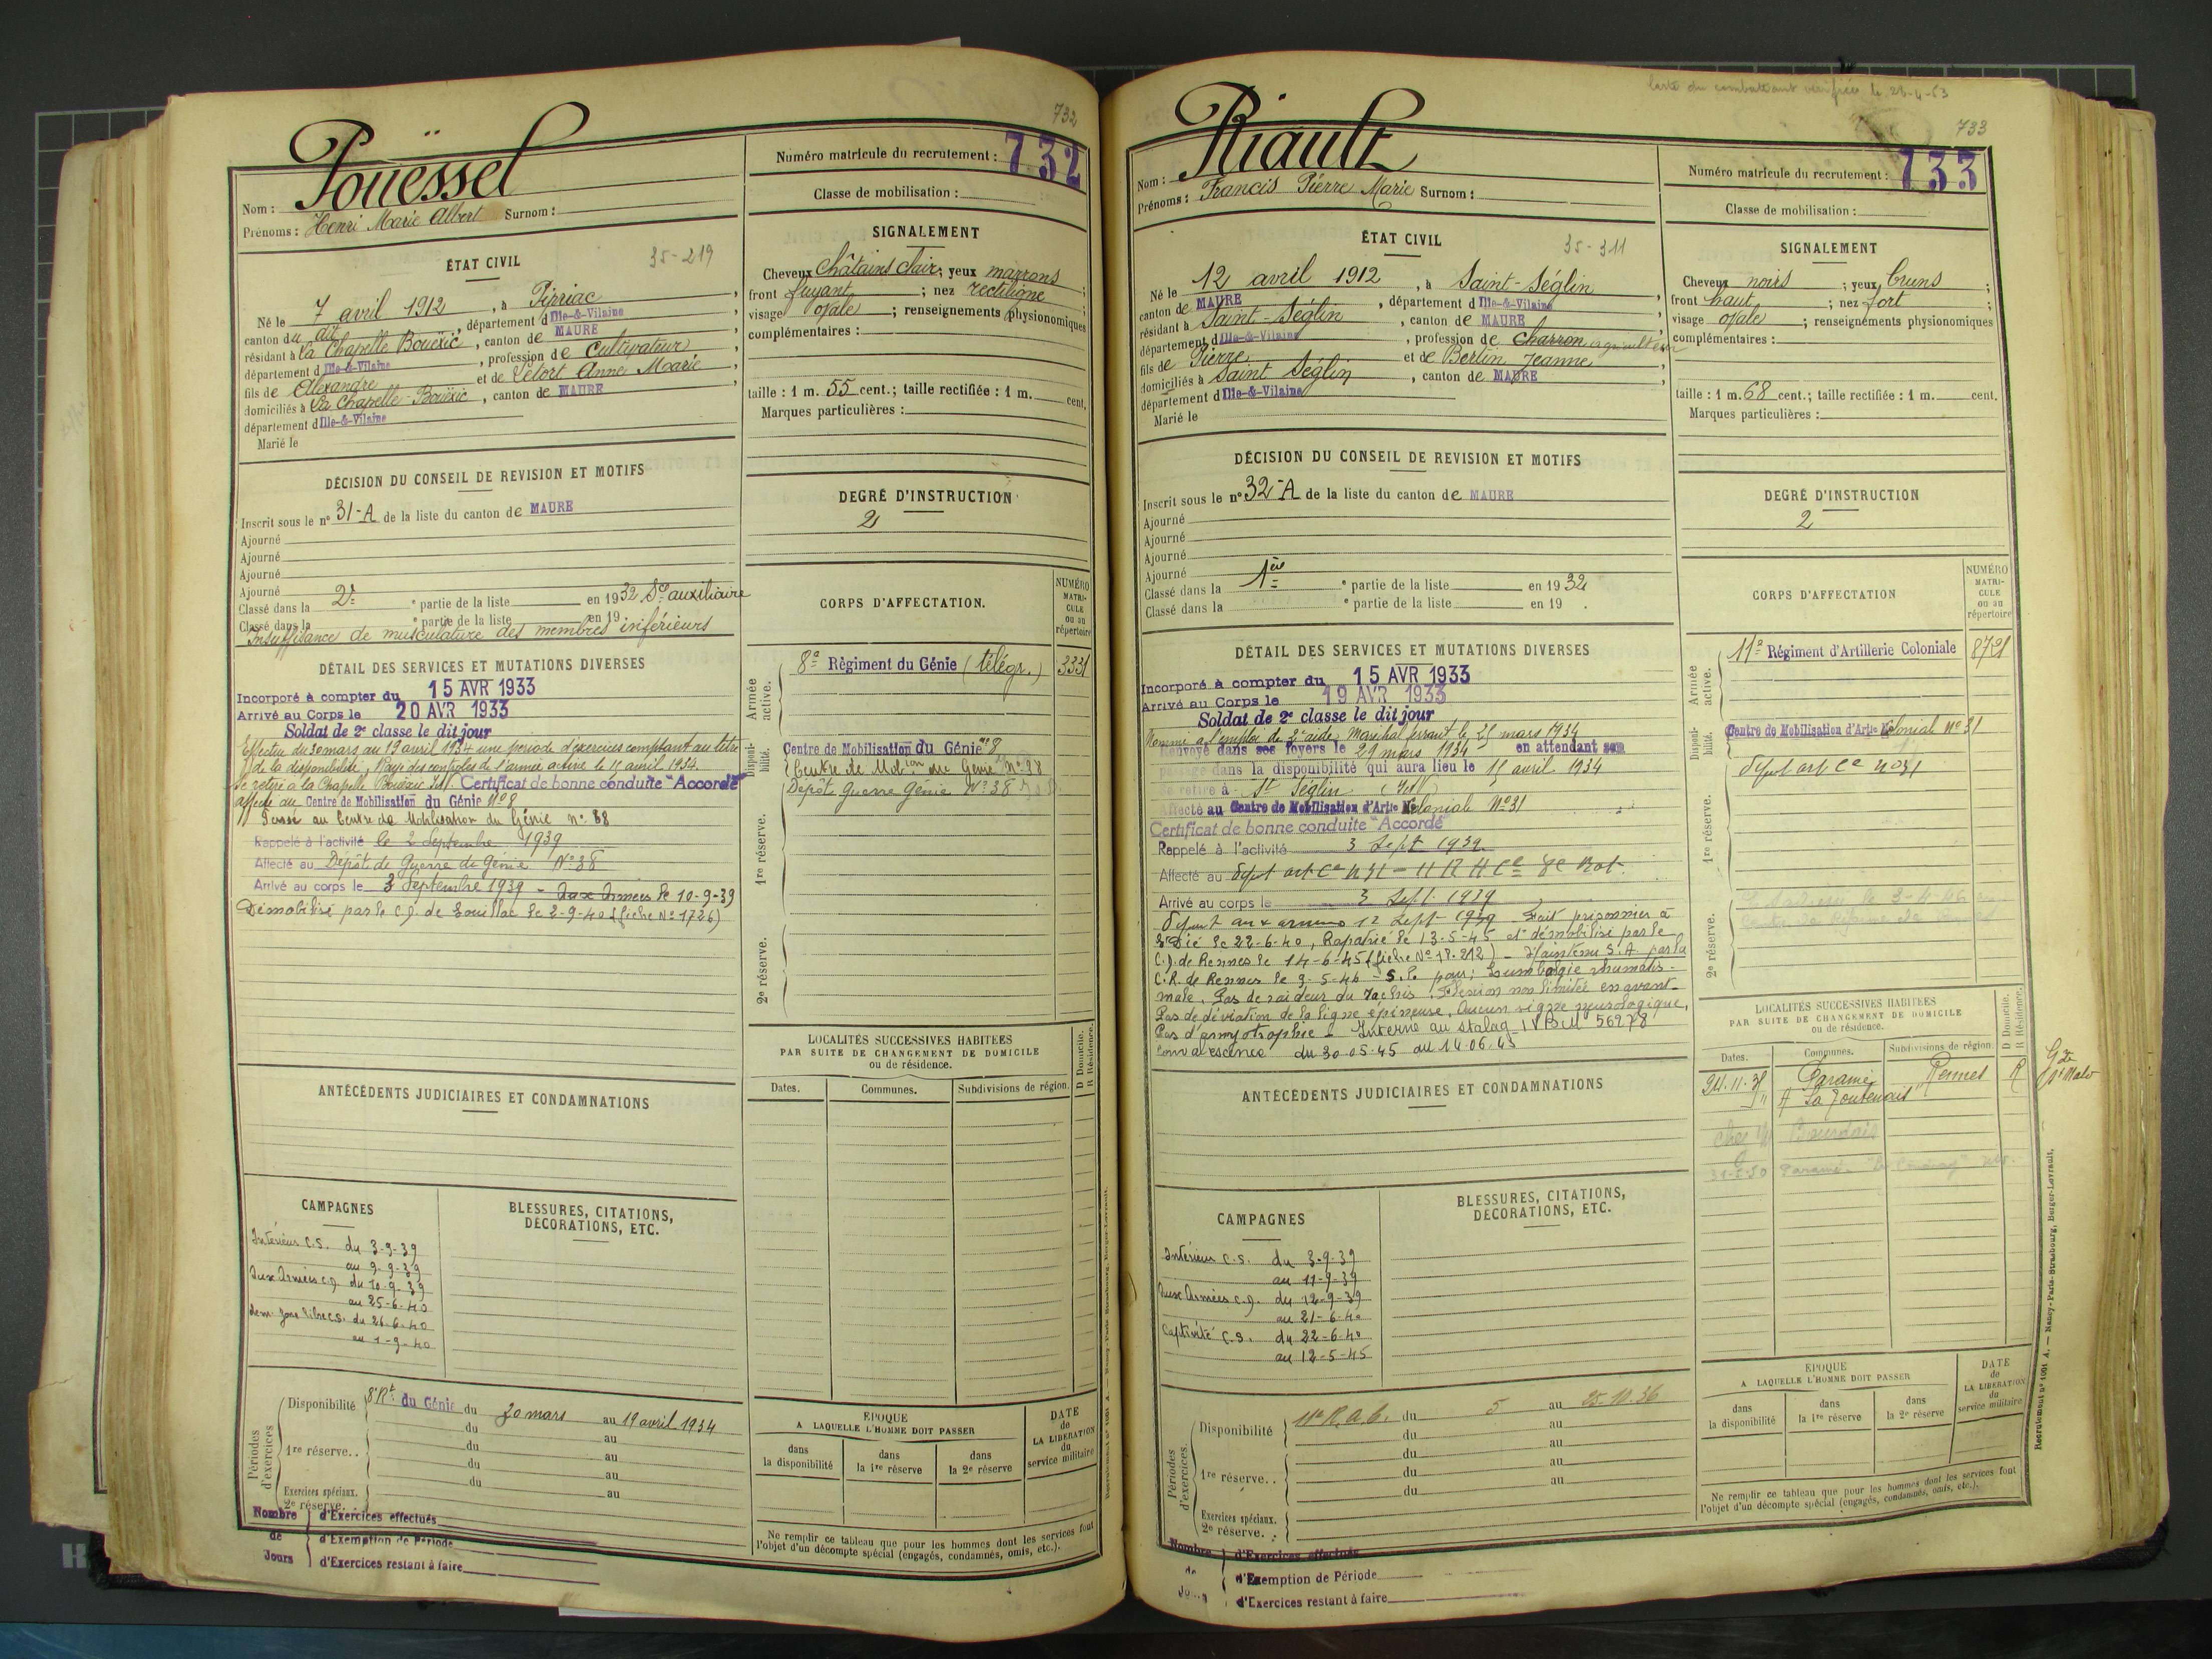 732
Pouëssel
Nom :
Prénoms : Henri Marie Albert Surnom :
Numéro matricule du recrutement : 732
Classe de mobilisation :
ÉTAT CIVIL
35-219
Né le 7 avril 1912, à Pirriac,
canton du dit, département d Ille-&-Vilaine
résidant à la Chapelle Bouëxic, canton de MAURE
département d Ille-&-Vilaine, profession de cultivateur,
fils de Alexandre et de Létort Anne Marie,
domiciliés à La Chapelle-Bouëxic, canton de MAURE
département d Ille-&-Vilaine
Marié le
SIGNALEMENT
Cheveux Châtains clair; yeux marrons;
front fuyant; nez rectiligne;
visage ovale; renseignements physionomiques
complémentaires :
taille : 1 m. 55 cent.; taille rectifiée : 1 m. cent.
Marques particulières :
DÉCISION DU CONSEIL DE REVISION ET MOTIFS
Inscrit sous le n° 31-A de la liste du canton de MAURE
Ajourné
Ajourné
Ajourné
Ajourné
Classé dans la 2e partie de la liste en 1932 Sce auxiliaire
Classé dans la partie de la liste en 19
Insuffisance de musculature des membres inférieurs
DEGRÉ D'INSTRUCTION
2
DÉTAIL DES SERVICES ET MUTATIONS DIVERSES
Incorporé à compter du 15 AVR 1933
Arrivé au Corps le 20 AVR 1933
Soldat de 2e classe le dit jour
Effectue du 30 mars au 19 avril 1934 une période d'exercices comptant au titre
de la disponibilité, Rayé des contrôles de l'armée active le 15 avril 1934.
Se retire à la Chapelle Bouëxic Certificat de bonne conduite "Accordé"
affecté au Centre de Mobilisation du Génie N° 8
Passé au Centre de Mobilisation du Génie n° 38
Rappelé à l'activité le 2 Septembre 1939
Affecté au Dépôt de Guerre de Génie N° 38
Arrivé au corps le 3 Septembre 1939 - Aux Armées le 10-9-39
Démobilisé par le C.D. de Souillac le 2-9-40 (fiche N° 1726)
CORPS D'AFFECTATION.
NUMÉRO MATRICULE ou au répertoire
Armée active.
8e Régiment du Génie (télégr.) 3331
Disponibilité.
Centre de Mobilisation du Génie n° 8
Centre de Mobion du Génie n° 38
Dépôt Guerre Génie N° 38
1re réserve.
2e réserve.
ANTÉCÉDENTS JUDICIAIRES ET CONDAMNATIONS
LOCALITÉS SUCCESSIVES HABITÉES
PAR SUITE DE CHANGEMENT DE DOMICILE
ou de résidence.
Dates. Communes. Subdivisions de région. D Domicile. R Résidence.
CAMPAGNES
Intérieur C.S. du 3-9-39
au 9-9-39
Aux Armées C.D. du 10-9-39
au 25-6-40
dem. Zone libre C.S. du 26-6-40
au 1-9-40
BLESSURES, CITATIONS,
DÉCORATIONS, ETC.
Périodes d'exercices
Disponibilité 8e Rt du Génie du 30 mars au 19 avril 1934
du au
1re réserve.. du au
du au
Exercices spéciaux. du au
2e réserve.
Nombre de Jours
d'Exercices effectués
d'Exemption de Période
d'Exercices restant à faire
ÉPOQUE
A LAQUELLE L'HOMME DOIT PASSER
dans la disponibilité
dans la 1re réserve
dans la 2e réserve
DATE de LA LIBÉRATION du service militaire
Ne remplir ce tableau que pour les hommes dont les services font
l'objet d'un décompte spécial (engagés, condamnés, omis, etc.).
Carte du combattant vérifiée le 28-4-53
733
Riault
Nom :
Prénoms : Francis Pierre Marie Surnom :
Numéro matricule du recrutement : 733
Classe de mobilisation :
ÉTAT CIVIL
35-311
Né le 12 avril 1912, à Saint-Séglin,
canton de MAURE, département d Ille-&-Vilaine
résidant à Saint-Séglin, canton de MAURE
département d Ille-&-Vilaine, profession de charron agriculteur
fils de Pierre et de Bertin Jeanne,
domiciliés à Saint Séglin, canton de MAURE
département d Ille-&-Vilaine
Marié le
SIGNALEMENT
Cheveux noirs; yeux bruns;
front haut; nez fort;
visage ovale; renseignements physionomiques
complémentaires :
taille : 1 m. 68 cent.; taille rectifiée : 1 m. cent.
Marques particulières :
DÉCISION DU CONSEIL DE REVISION ET MOTIFS
Inscrit sous le n° 32-A de la liste du canton de MAURE
Ajourné
Ajourné
Ajourné
Ajourné
Classé dans la 1ère partie de la liste en 1932
Classé dans la partie de la liste en 19 .
DEGRÉ D'INSTRUCTION
2
DÉTAIL DES SERVICES ET MUTATIONS DIVERSES
Incorporé à compter du 15 AVR 1933
Arrivé au Corps le 19 AVR 1933
Soldat de 2e classe le dit jour
Nommé à l'emploi de 2e aide Maréchal ferrant le 25 mars 1934
Renvoyé dans ses foyers le 29 mars 1934 en attendant son
passage dans la disponibilité qui aura lieu le 15 avril 1934
Se retire à St Séglin (I&V)
Affecté au Centre de Mobilisation d'Artie Coloniale N° 31
Certificat de bonne conduite "Accordé"
Rappelé à l'activité 3 Sept 1939
Affecté au dépôt art Cle N 31 - 11 R A Cle 8e Bat.
Arrivé au corps le 3 Sept. 1939
départ aux armées 12 Sept 1939 Fait prisonnier à
St Dié le 22-6-40, Rapatrié le 13-5-45 et démobilisé par le
C.D. de Rennes le 14-6-45 (fiche N° 18.212) - Maintenu S.A par la
C.R. de Rennes le 9-5-46 - S.P. pour; Lumbalgie rhumatis-
male. Pas de raideur du rachis. Flexion non limitée en avant.
Pas de déviation de la ligne épineuse, Aucun signe neurologique,
Pas d'amyotrophie - Interné au stalag IV B M 56978
Convalescence du 30.05.45 au 14.06.45
CORPS D'AFFECTATION
NUMÉRO MATRICULE ou au répertoire
Armée active.
11e Régiment d'Artillerie Coloniale 8721
Disponibilité.
Centre de Mobilisation d'Artie Coloniale N° 31
dépôt art Cle n° 31
1re réserve.
2e réserve.
ANTÉCÉDENTS JUDICIAIRES ET CONDAMNATIONS
LOCALITÉS SUCCESSIVES HABITÉES
PAR SUITE DE CHANGEMENT DE DOMICILE
ou de résidence.
Dates. Communes. Subdivisions de région. D Domicile. R Résidence.
Paramé Rennes R
St Malo
31-5-50 Paramé
CAMPAGNES
Intérieur C.S. du 3-9-39
au 11-9-39
Aux Armées C.D. du 12-9-39
au 21-6-40
Captivité C.S. du 22-6-40
au 12-5-45
BLESSURES, CITATIONS,
DÉCORATIONS, ETC.
Périodes d'exercices.
Disponibilité 11e R.A.C. du 5 au 25.10.36
du au
du au
1re réserve.. du au
du au
Exercices spéciaux.
2e réserve. .
Nombre de Jours
d'Exercices effectués
d'Exemption de Période
d'Exercices restant à faire
ÉPOQUE
A LAQUELLE L'HOMME DOIT PASSER
dans la disponibilité
dans la 1re réserve
dans la 2e réserve
DATE de LA LIBÉRATION du service militaire
Ne remplir ce tableau que pour les hommes dont les services font
l'objet d'un décompte spécial (engagés, condamnés, omis, etc.).
Recrutement n° 1001 A. — Nancy-Paris-Strasbourg, Berger-Levrault.